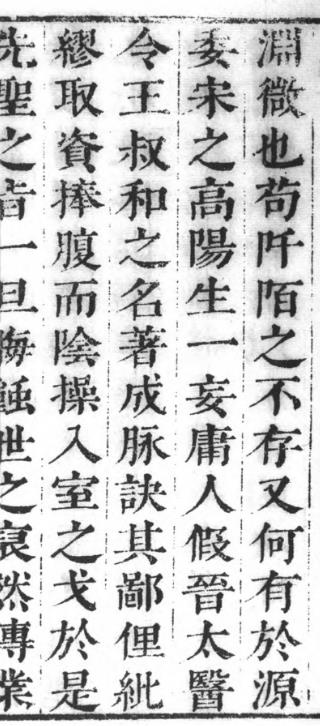 淵微也苟阡陌之不存又何有於源
委宋之高陽生一妄庸人假晉太醫
令王叔和之名著成脉訣其鄙俚紕
繆取資捧腹而陰操入室之戈於是
先聖之旨一旦晦蝕世之裒然專業